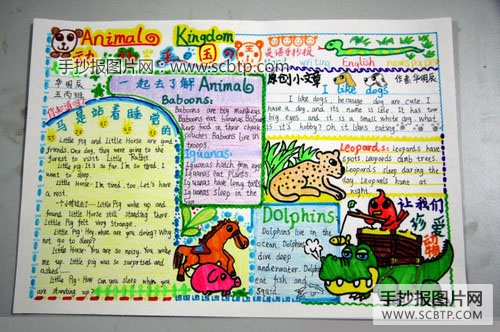 手抄报图片网
www.scbtp.com
Animal Kingdom
动物王国
英语手抄报
writing English newspaper
一起去了解 Animal
Baboons:
Baboons are big monkeys
Baboons eat
keep food in their cheek
pouches Baboons live in
troops.
Iguanas:
Iguanas hatch from eggs
Iguanas eat plants
Iguanas have long tails
Iguanas sleep in the
sun
马是站着睡觉的
Little Pig and Little Horse are good
friends. One day, they were going to the
forest to visit Little Rabbit.
Little pig: It's so far. I'm so tired. I
want to sleep.
Little Horse: I'm tired, too. Let's have
a rest.
Little Pig woke up and
found Little Horse still standing there.
Little Pig felt very strange.
Little Pig: Hey, what are you doing? Why
not go to sleep?
Little Horse: You are so noisy. You woke
me up. Little pig was so surprised and
asked
Little Pig: How can you sleep when you
are standing up?
原创小文章
I like dogs
I like dogs, because dog are cute. I
have a dog, and it's name is like. It has two
big eyes, and it is a small white dog. What
is it's hobby? Oh it likes eating.
Leopards: leopards have
spots. Leopards climb trees.
Leopards sleep during the
day. Leopards hunt at
night.
Dolphins
Dolphins live in the
ocean. Dolphins
dive deep
underwater. Dolphins
eat fish and
squid.
让我们
珍爱
动物
手抄报图片网
WWW.SCBTP.COM